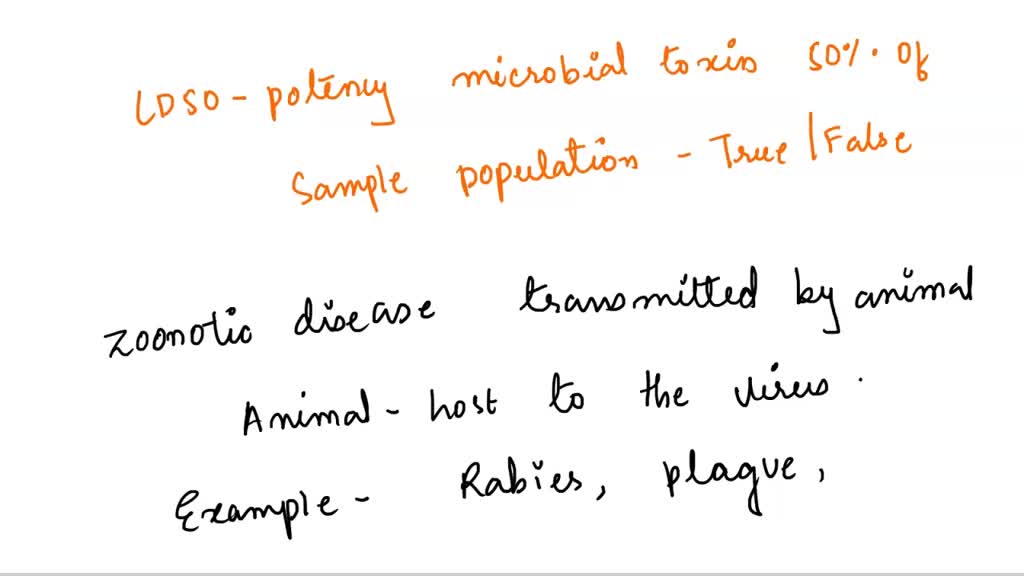 LD50 - potency microbial toxin 50% of
Sample population - True | False
Zoonotic disease transmitted by animal
Animal - host to the virus.
Example - Rabies, plague,